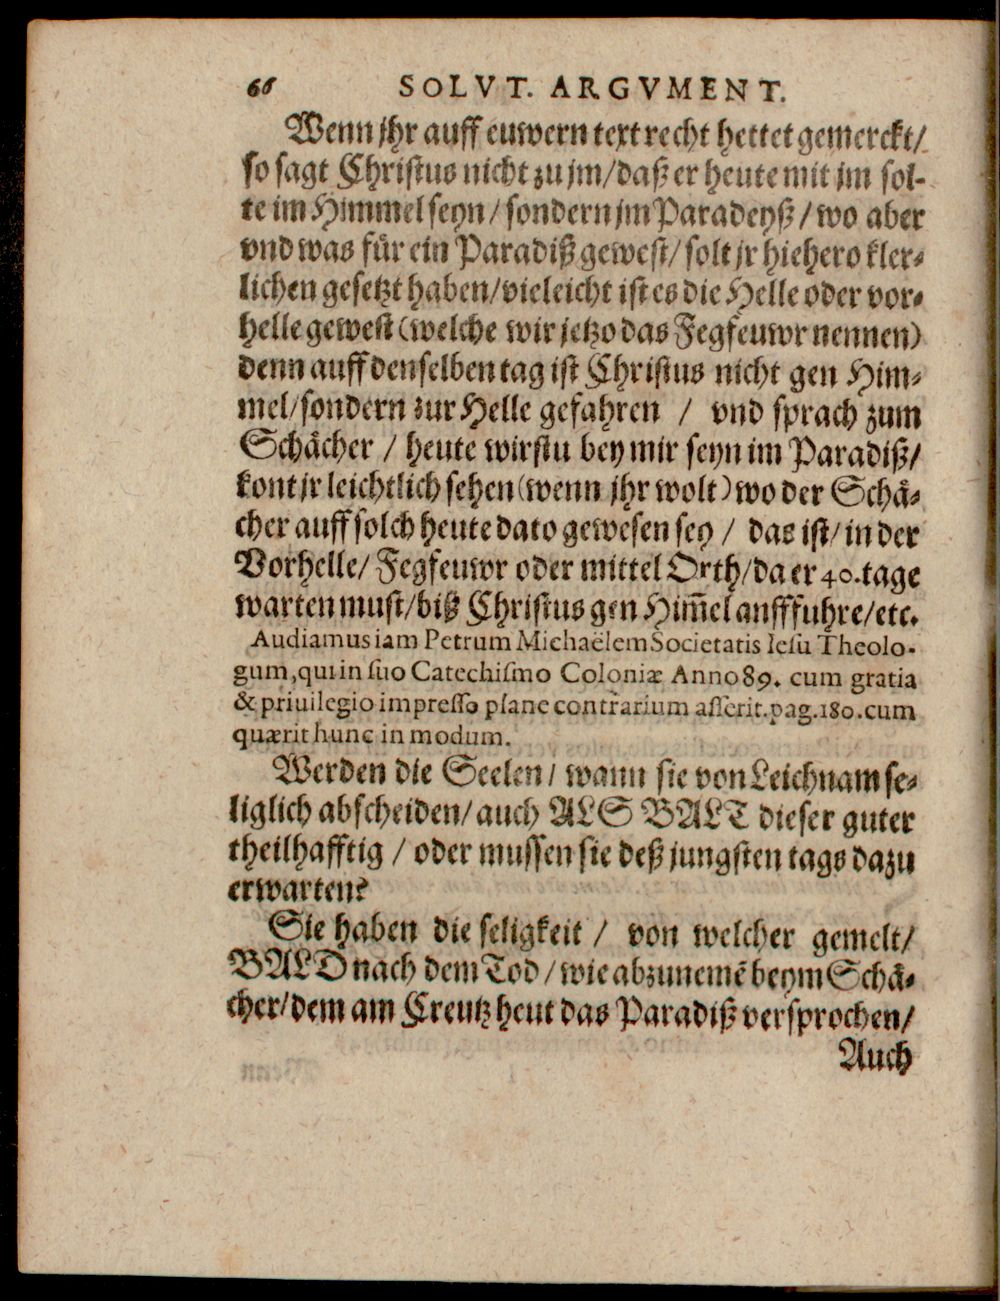 66 SOLVT. ARGVMENT.
Wenn jhr auff euwern text recht hettet gemerckt/
so sagt Christus nicht zu jm/daß er heute mit jm sol-
te im Himmel seyn/sondern jm Paradeyß/wo aber
vnd was für ein Paradiß gewest/solt jr hiehero kler-
lichen gesetzt haben/vieleicht ist es die Helle oder vor-
helle gewest (welche wir jetzo das Fegfeuwr nennen)
denn auff denselben tag ist Christus nicht gen Him-
mel/sondern zur Helle gefahren / vnd sprach zum
Schächer / heute wirstu bey mir seyn im Paradiß/
kont jr leichtlich sehen (wenn jhr wolt) wo der Schä-
cher auff solch heute dato gewesen sey / das ist/in der
Vorhelle/ Fegfeuwr oder mittel Orth/da er 40. tage
warten must/biß Christus gen Him̃el anfffuhre/etc.
Audiamus iam Petrum Michaëlem Societatis Iesu Theolo-
gum, qui in suo Catechismo Coloniæ Anno 89. cum gratia
& priuilegio impresso plane contrarium asserit. pag. 180. cum
quærit hunc in modum.
Werden die Seelen/ wann sie von Leichnam se-
liglich abscheiden/auch ALS BALT dieser guter
theilhafftig / oder mussen sie deß jungsten tags dazu
erwarten?
Sie haben die seligkeit / von welcher gemelt/
BALD nach dem Tod/wie abzunemẽ beym Schä-
cher/dem am Creutz heut das Paradiß versprochen/
Auch